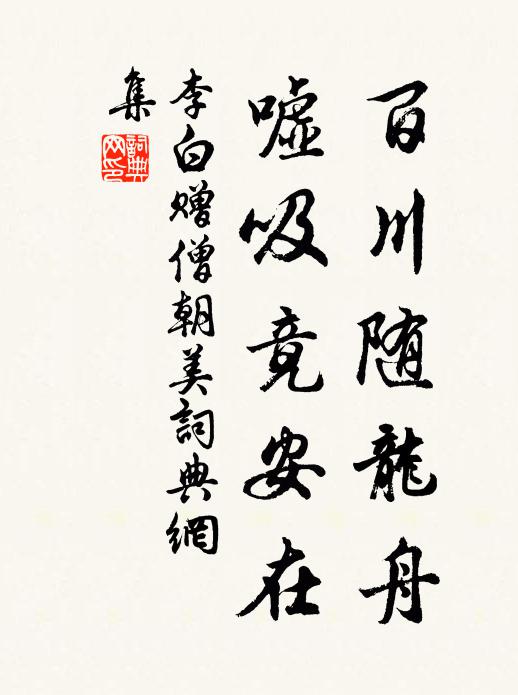 百川随龍舟
嘘吸竟安在
李白赠僧朝美詞典網
集
詞典網印